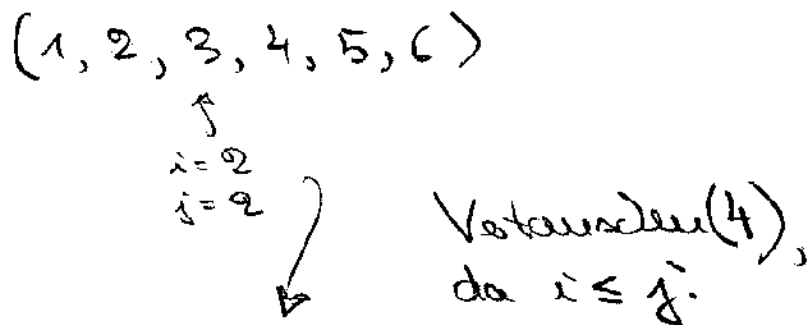 (1, 2, 3, 4, 5, 6)
i = 2
j = 2
Vertauschen(4),
da i ≤ j.